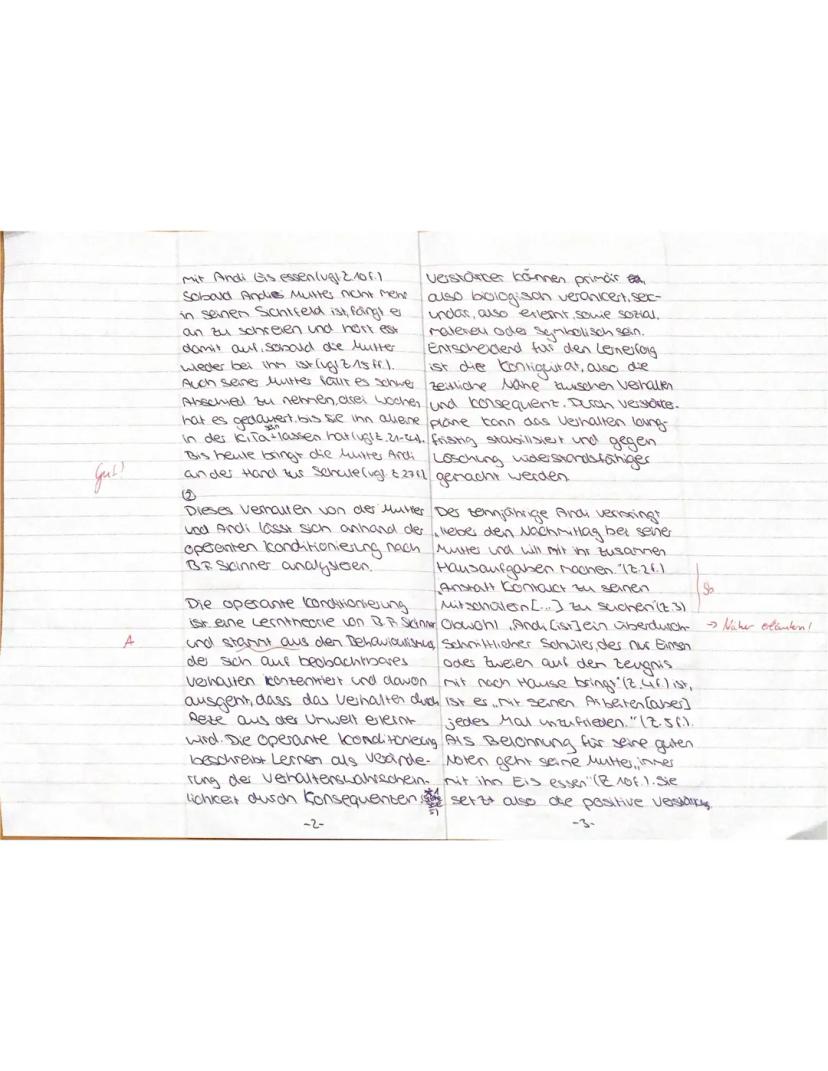 mit Andi Eis essen (vgl. Z. 10 f.)
Sobald Andis Mutter nicht mehr
in seinem Sichtfeld ist, fängt er
an zu schreien und hört erst
damit auf, sobald die Mutter
wieder bei ihm ist (vgl. Z. 15 ff.).
Auch seiner Mutter fällt es schwer
Abschied zu nehmen, drei Wochen
hat es gedauert, bis sie ihn alleine
in der KiTa lassen hat (vgl. Z. 21-24).
Bis heute bringt die Mutter Andi
an der Hand zur Schule (vgl. Z. 27 f.)
Gut!
②
Dieses Verhalten von der Mutter
und Andi lässt sich anhand der
operanten Konditionierung nach
B.F. Skinner analysieren.
Die operante Konditionierung
ist eine Lerntheorie von B.F. Skinner
und stammt aus dem Behaviourismus,
A
der sich auf beobachtbares
Verhalten konzentriert und davon
ausgeht, dass das Verhalten durch
Reize aus der Umwelt erlernt
wird. Die operante Konditionierung
beschreibt Lernen als Verände-
rung der Verhaltenswahrschein-
lichkeit durch Konsequenzen
-2-
Verstärker können primär
also biologisch verankert, sek-
undär, also erlernt, sowie sozial,
materiell oder symbolisch sein.
Entscheidend für den Lernerfolg
ist die Kontiguität, also die
zeitliche Nähe zwischen Verhalten
und Konsequenz. Durch Verstärker-
pläne kann das Verhalten lang-
fristig stabilisiert und gegen
Löschung widerstandsfähiger
gemacht werden.
Der zehnjährige Andi verbringt
„lieber den Nachmittag bei seiner
Mutter und will mit ihr zusammen
Hausaufgaben machen." (Z. 2 f.)
„Anstatt Kontakt zu seinen
Mitschülern [...] zu suchen" (Z. 3)
Obwohl „Andi [ist] ein überdurch-
→ Näher erläutern!
schnittlicher Schüler, der nur Einsen
oder Zweien auf dem Zeugnis
mit nach Hause bringt" (Z. 4 f.) ist,
ist er „mit seinen Arbeiten [aber]
jedes Mal unzufrieden." (Z. 5 f.).
Als Belohnung für seine guten
Noten geht seine Mutter „immer
mit ihm Eis essen" (Z. 10 f.). Sie
setzt also die positive Verstärkung
-3-